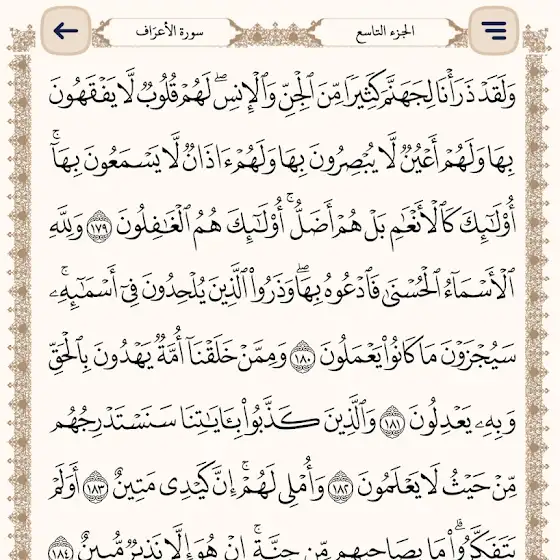 سورة الأعراف
الجزء التاسع
وَلَقَدْ ذَرَأْنَا لِجَهَنَّمَ كَثِيرًا مِّنَ ٱلْجِنِّ وَٱلْإِنسِ ۖ لَهُمْ قُلُوبٌ لَّا يَفْقَهُونَ
بِهَا وَلَهُمْ أَعْيُنٌ لَّا يُبْصِرُونَ بِهَا وَلَهُمْ ءَاذَانٌ لَّا يَسْمَعُونَ بِهَآ ۚ
أُو۟لَـٰٓئِكَ كَٱلْأَنْعَـٰمِ بَلْ هُمْ أَضَلُّ ۚ أُو۟لَـٰٓئِكَ هُمُ ٱلْغَـٰفِلُونَ ١٧٩ وَلِلَّهِ
ٱلْأَسْمَآءُ ٱلْحُسْنَىٰ فَٱدْعُوهُ بِهَا ۖ وَذَرُوا۟ ٱلَّذِينَ يُلْحِدُونَ فِىٓ أَسْمَـٰٓئِهِۦ ۚ
سَيُجْزَوْنَ مَا كَانُوا۟ يَعْمَلُونَ ١٨٠ وَمِمَّنْ خَلَقْنَآ أُمَّةٌ يَهْدُونَ بِٱلْحَقِّ
وَبِهِۦ يَعْدِلُونَ ١٨١ وَٱلَّذِينَ كَذَّبُوا۟ بِـَٔايَـٰتِنَا سَنَسْتَدْرِجُهُم
مِّنْ حَيْثُ لَا يَعْلَمُونَ ١٨٢ وَأُمْلِى لَهُمْ ۚ إِنَّ كَيْدِى مَتِينٌ ١٨٣ أَوَلَمْ
يَتَفَكَّرُوا۟ ۗ مَا بِصَاحِبِهِم مِّن جِنَّةٍ ۚ إِنْ هُوَ إِلَّا نَذِيرٌ مُّبِينٌ ١٨٤